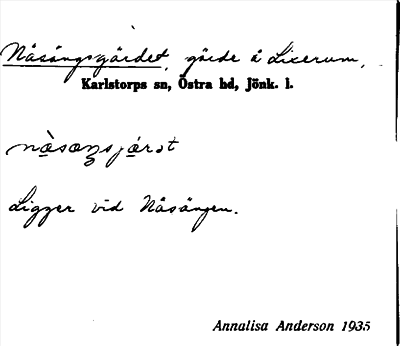 Nåsängsgärdet, gärde å Lixerum,
Karlstorps sn, Östra hd, Jönk. l.
Ligger vid Nåsängen.
Annalisa Anderson 1935